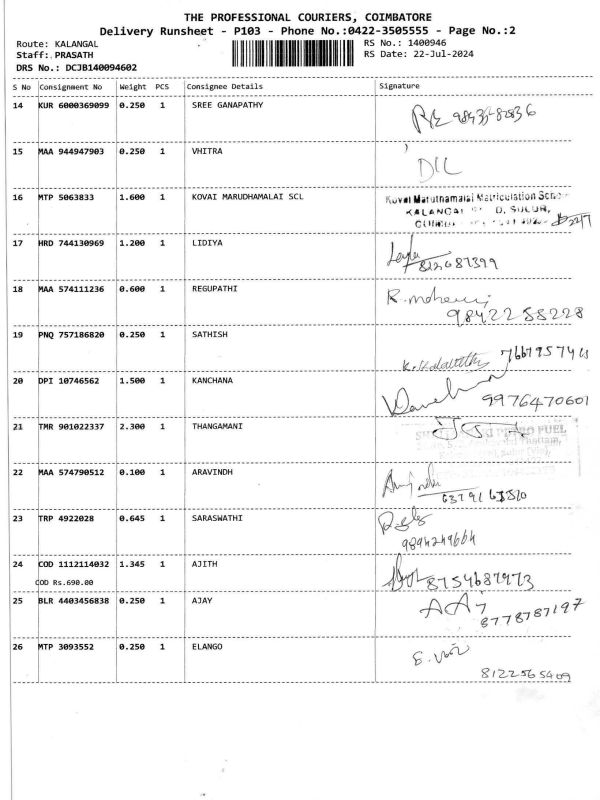 THE PROFESSIONAL COURIERS, COIMBATORE
Delivery Runsheet - P103 - Phone No.:0422-3505555 - Page No.:2
Route: KALANGAL
RS No.: 1400946
Staff: PRASATH
RS Date: 22-Jul-2024
DRS No.: DCJB140094602
S No Consignment No Weight PCS Consignee Details Signature
14 KUR 6000369099 0.250 1 SREE GANAPATHY
15 MAA 944947903 0.250 1 VHITRA
16 MTP 5063833 1.600 1 KOVAI MARUDHAMALAI SCL
17 HRD 744130969 1.200 1 LIDIYA
18 MAA 574111236 0.600 1 REGUPATHI
9842258228
19 PNQ 757186820 0.250 1 SATHISH
20 DPI 10746562 1.500 1 KANCHANA
9976470601
21 TMR 901022337 2.300 1 THANGAMANI
22 MAA 574790512 0.100 1 ARAVINDH
23 TRP 4922028 0.645 1 SARASWATHI
9894249664
24 COD 1112114032 1.345 1 AJITH 8754687973
COD Rs.690.00
25 BLR 4403456838 0.250 1 AJAY
8778787197
26 MTP 3093552 0.250 1 ELANGO
8122565409